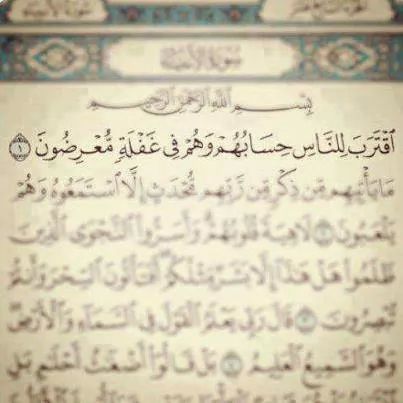 سُورَةُ الأَنبِيَاءِ
بِسْمِ ٱللَّهِ ٱلرَّحْمَٰنِ ٱلرَّحِيمِ
ٱقْتَرَبَ لِلنَّاسِ حِسَابُهُمْ وَهُمْ فِى غَفْلَةٍ مُّعْرِضُونَ ١
مَا يَأْتِيهِم مِّن ذِكْرٍ مِّن رَّبِّهِم مُّحْدَثٍ إِلَّا ٱسْتَمَعُوهُ وَهُمْ
يَلْعَبُونَ ٢ لَاهِيَةً قُلُوبُهُمْ وَأَسَرُّوا۟ ٱلنَّجْوَى ٱلَّذِينَ
ظَلَمُوا۟ هَلْ هَٰذَآ إِلَّا بَشَرٌ مِّثْلُكُمْ أَفَتَأْتُونَ ٱلسِّحْرَ وَأَنتُمْ
تُبْصِرُونَ ٣ قَالَ رَبِّى يَعْلَمُ ٱلْقَوْلَ فِى ٱلسَّمَآءِ وَٱلْأَرْضِ
وَهُوَ ٱلسَّمِيعُ ٱلْعَلِيمُ ٤ بَلْ قَالُوٓا۟ أَضْغَٰثُ أَحْلَٰمٍ بَلِ